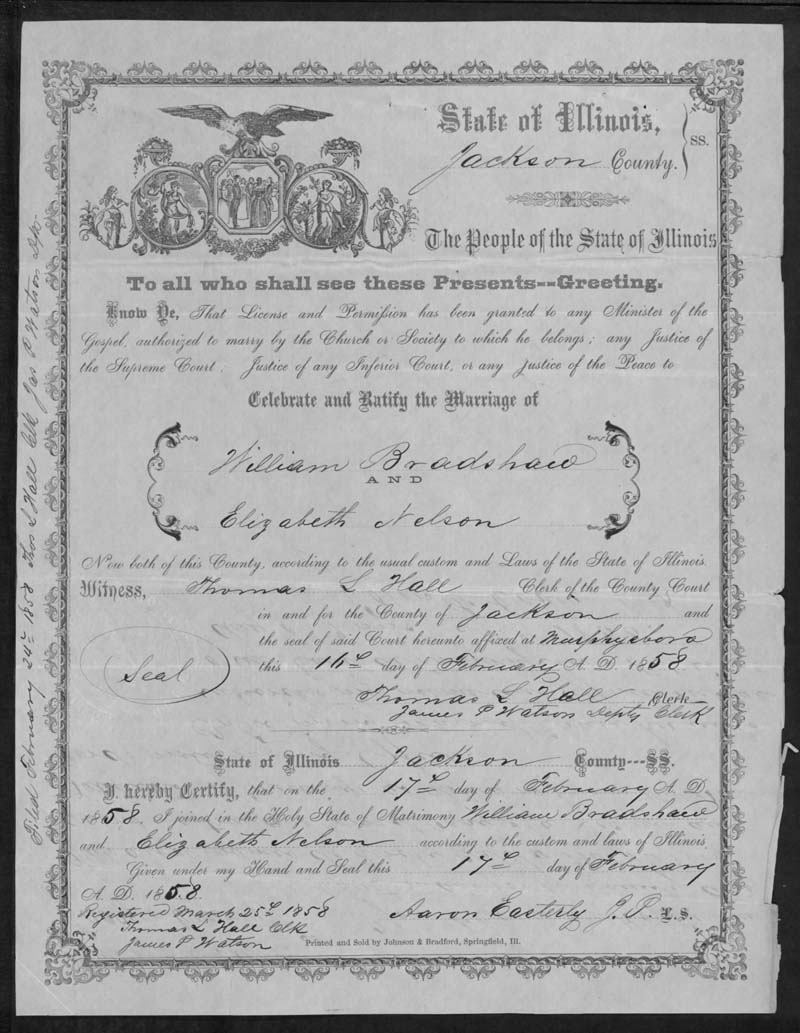 State of Illinois,
Jackson County. } SS.
The People of the State of Illinois
To all who shall see these Presents--Greeting.
Know Ye, That License and Permission has been granted to any Minister of the
Gospel, authorized to marry by the Church or Society to which he belongs; any Justice of
the Supreme Court, Justice of any Inferior Court, or any justice of the Peace to
Celebrate and Ratify the Marriage of
William Bradshaw
AND
Elizabeth Nelson
Now both of this County, according to the usual custom and Laws of the State of Illinois.
Witness, Thomas L Hall Clerk of the County Court
in and for the County of Jackson and
the seal of said Court hereunto affixed at Murphysboro
Seal
this 16th day of February A. D. 1858
Thomas L Hall Clerk
James P Watson Depty Clerk
State of Illinois Jackson County---SS.
I hereby Certify, that on the 17th day of February A. D
1858. I joined in the Holy State of Matrimony William Bradshaw
and Elizabeth Nelson according to the custom and laws of Illinois.
Given under my Hand and Seal this 17th day of February
A. D. 1858.
Aaron Easterly J. P. L. S.
Registered March 25th 1858
Thomas L Hall Clk
James P Watson
Printed and Sold by Johnson & Bradford, Springfield, Ill.
Filed February 24th 1858 Thos L Hall Clk Jas P Watson Dpt.